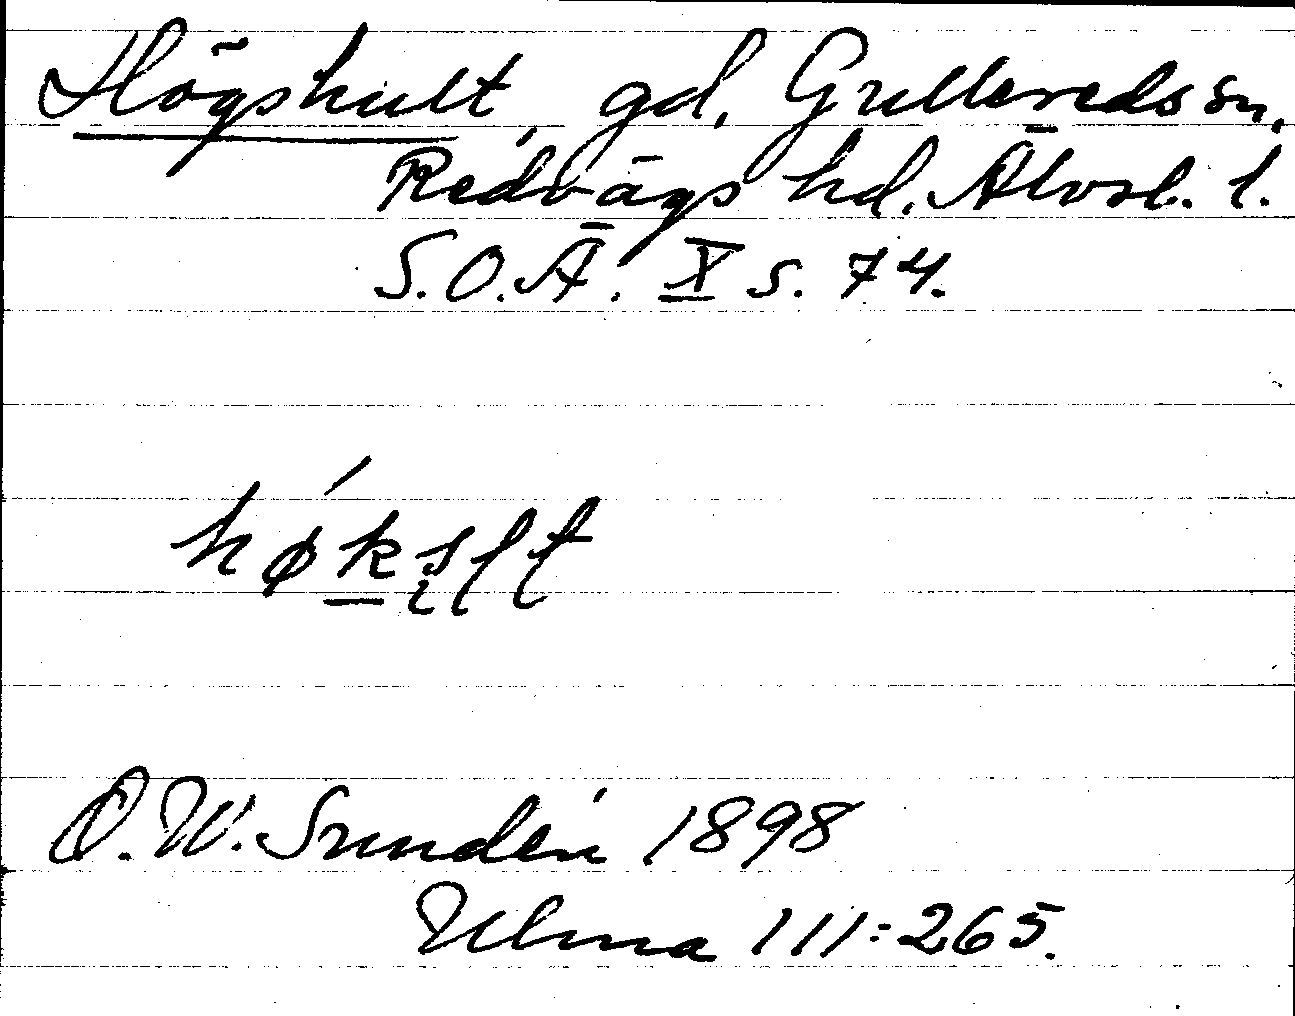 Högshult, gd, Gulleredssn,
Redvägs hd. Älvsb. l.
S.O.Ä. X s. 74.
hǿksl̥t
D. W. Sundén 1898
Ulma 111:265.